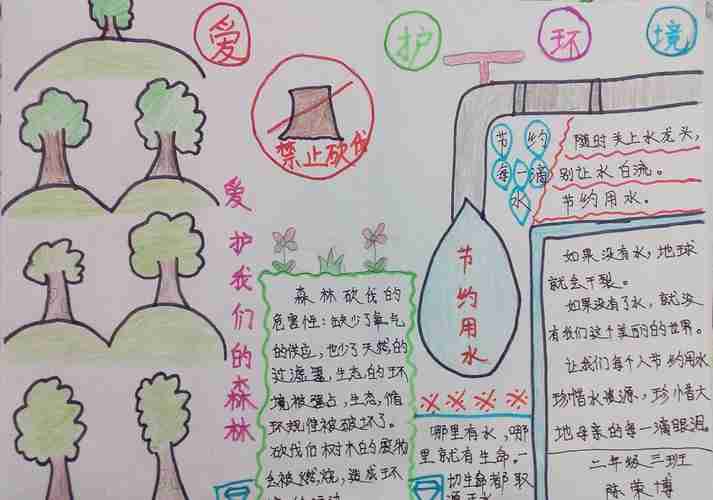 爱 护 环 境
禁止砍伐
爱护我们的森林
森林砍伐的
危害性：缺少了氧气
的供应，也少了天然的
过滤器，生态的环
境被强占，生态，循
环规律被破坏了。
砍伐伯树木的废物
会被燃烧，造成环
节约用水
节 约
每一滴
水
随时关上水龙头，
别让水白流。
节约用水。
如果没有水，地球
就会干裂。
如果没有了水，就没
有我们这个美丽的的世界。
让我们每个人节约用水
珍惜水资源，珍惜大
地母亲的每一滴眼泪。
二年级三班
陈荣博
哪里有水，哪
里就有生命。一
切生命都取